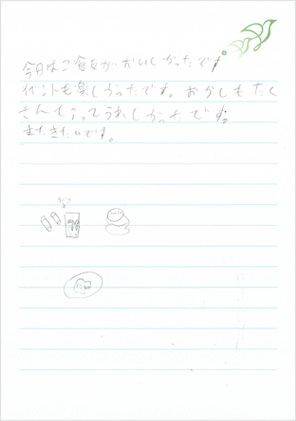 今日はご飯がおいしかったです。
イベントも楽しかったです。おかしもたく
さんもらってうれしかったです。
またきたいです。